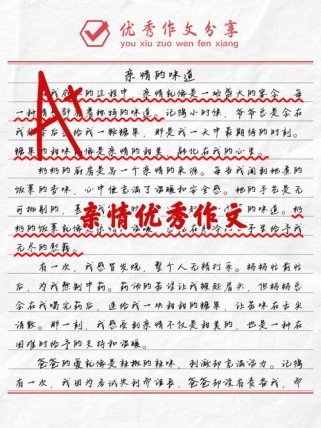 优秀作文分享
you xiu zuo wen fen xiang
亲情的味道
的过程中，亲情就像是一场盛大的宴会，每
一种
味道。记得小时候，爷爷总会在
后给我一颗糖果，那是我一天中最期待的时刻。
糖果的甜味就像是亲情的甜美，融化在我的心里。
奶奶的厨房是另一个亲情的来源。每当我闻到她煮的
饭菜的香味，心中便充满了温暖和安全感。她的手艺是无
可挑剔的，
味道。奶
奶的饭菜
里给予我
无尽的慰藉。
亲情优秀作文
A+
有一次，我感冒发烧，整个人无精打采。妈妈忙前忙
后，为我熬制中药。药汤的苦涩让我皱起眉头，但妈妈总
会在我喝完药后，递给我一块甜甜的糖果，让苦味在舌尖
消散。那一刻，我感受到亲情不仅是甜美的，也是一种在
困难时给予的支持和温暖。
爸爸的爱就像是辣椒的辣味，刺激却充满活力。记得
有一次，我因为考试失利而沮丧，爸爸却没有责备我，而